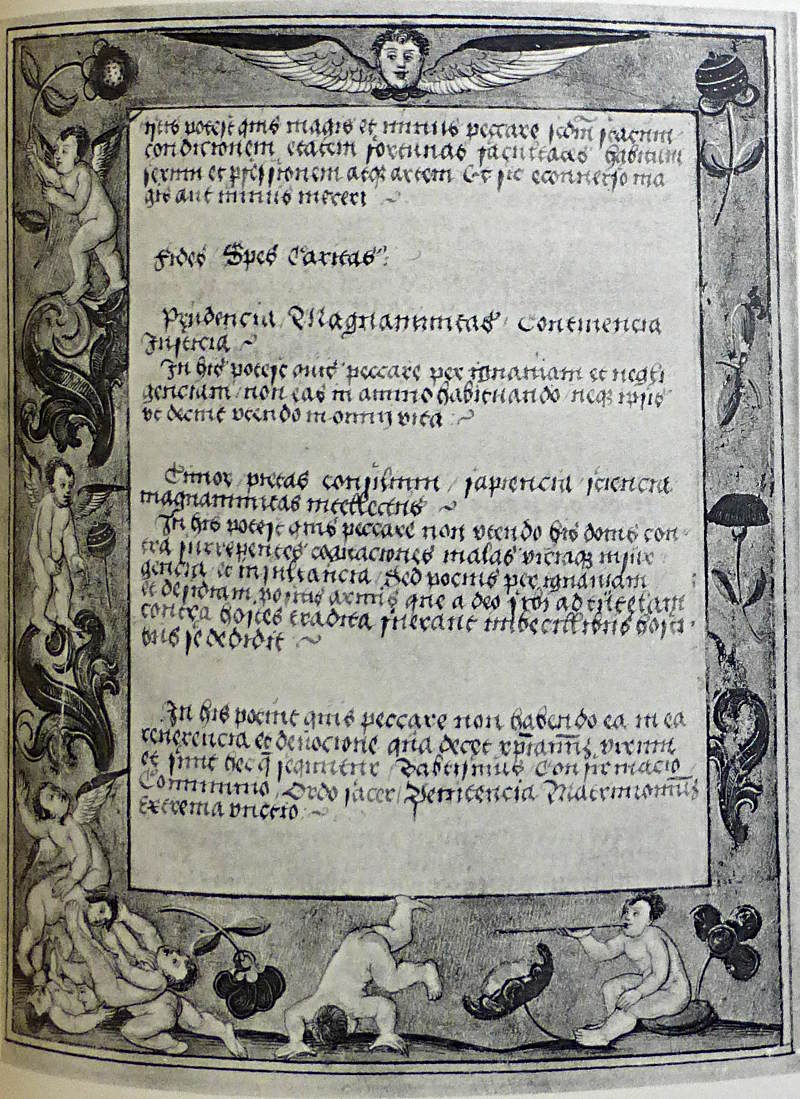 potest quis magis et minus peccare scdm
condicionem etatem fortunas facultates habitum
sexum et pfessionem atq artem Et sic econuerso ma
gis aut minus mereri
Fides Spes Caritas
Prudencia Magnanimitas Continencia
Justicia
In his potest quis peccare per ignauiam et negli
genciam non eas in animo habituando neq ipsis
vt decuit vtendo in omni vita
Timor pietas consilium sapiencia sciencia
magnanimitas intellectus
In his potest quis peccare non vtendo his donis con
tra surrepentes cogitaciones malas viciaq insur
gencia et insultancia Sed pocius per ignauiam
et desidiam armis que a deo sibi ad tutelam
contra hostes tradita fuerant imbecillibus hosti
bus se dedidit
In his potuit quis peccare non habendo ea in ea
reuerencia et deuocione qua decet virum
et sunt hec q sequntur Babtismus Confirmacio
Communio Ordo sacer Penitencia Matrimoniu
Extrema vnctio